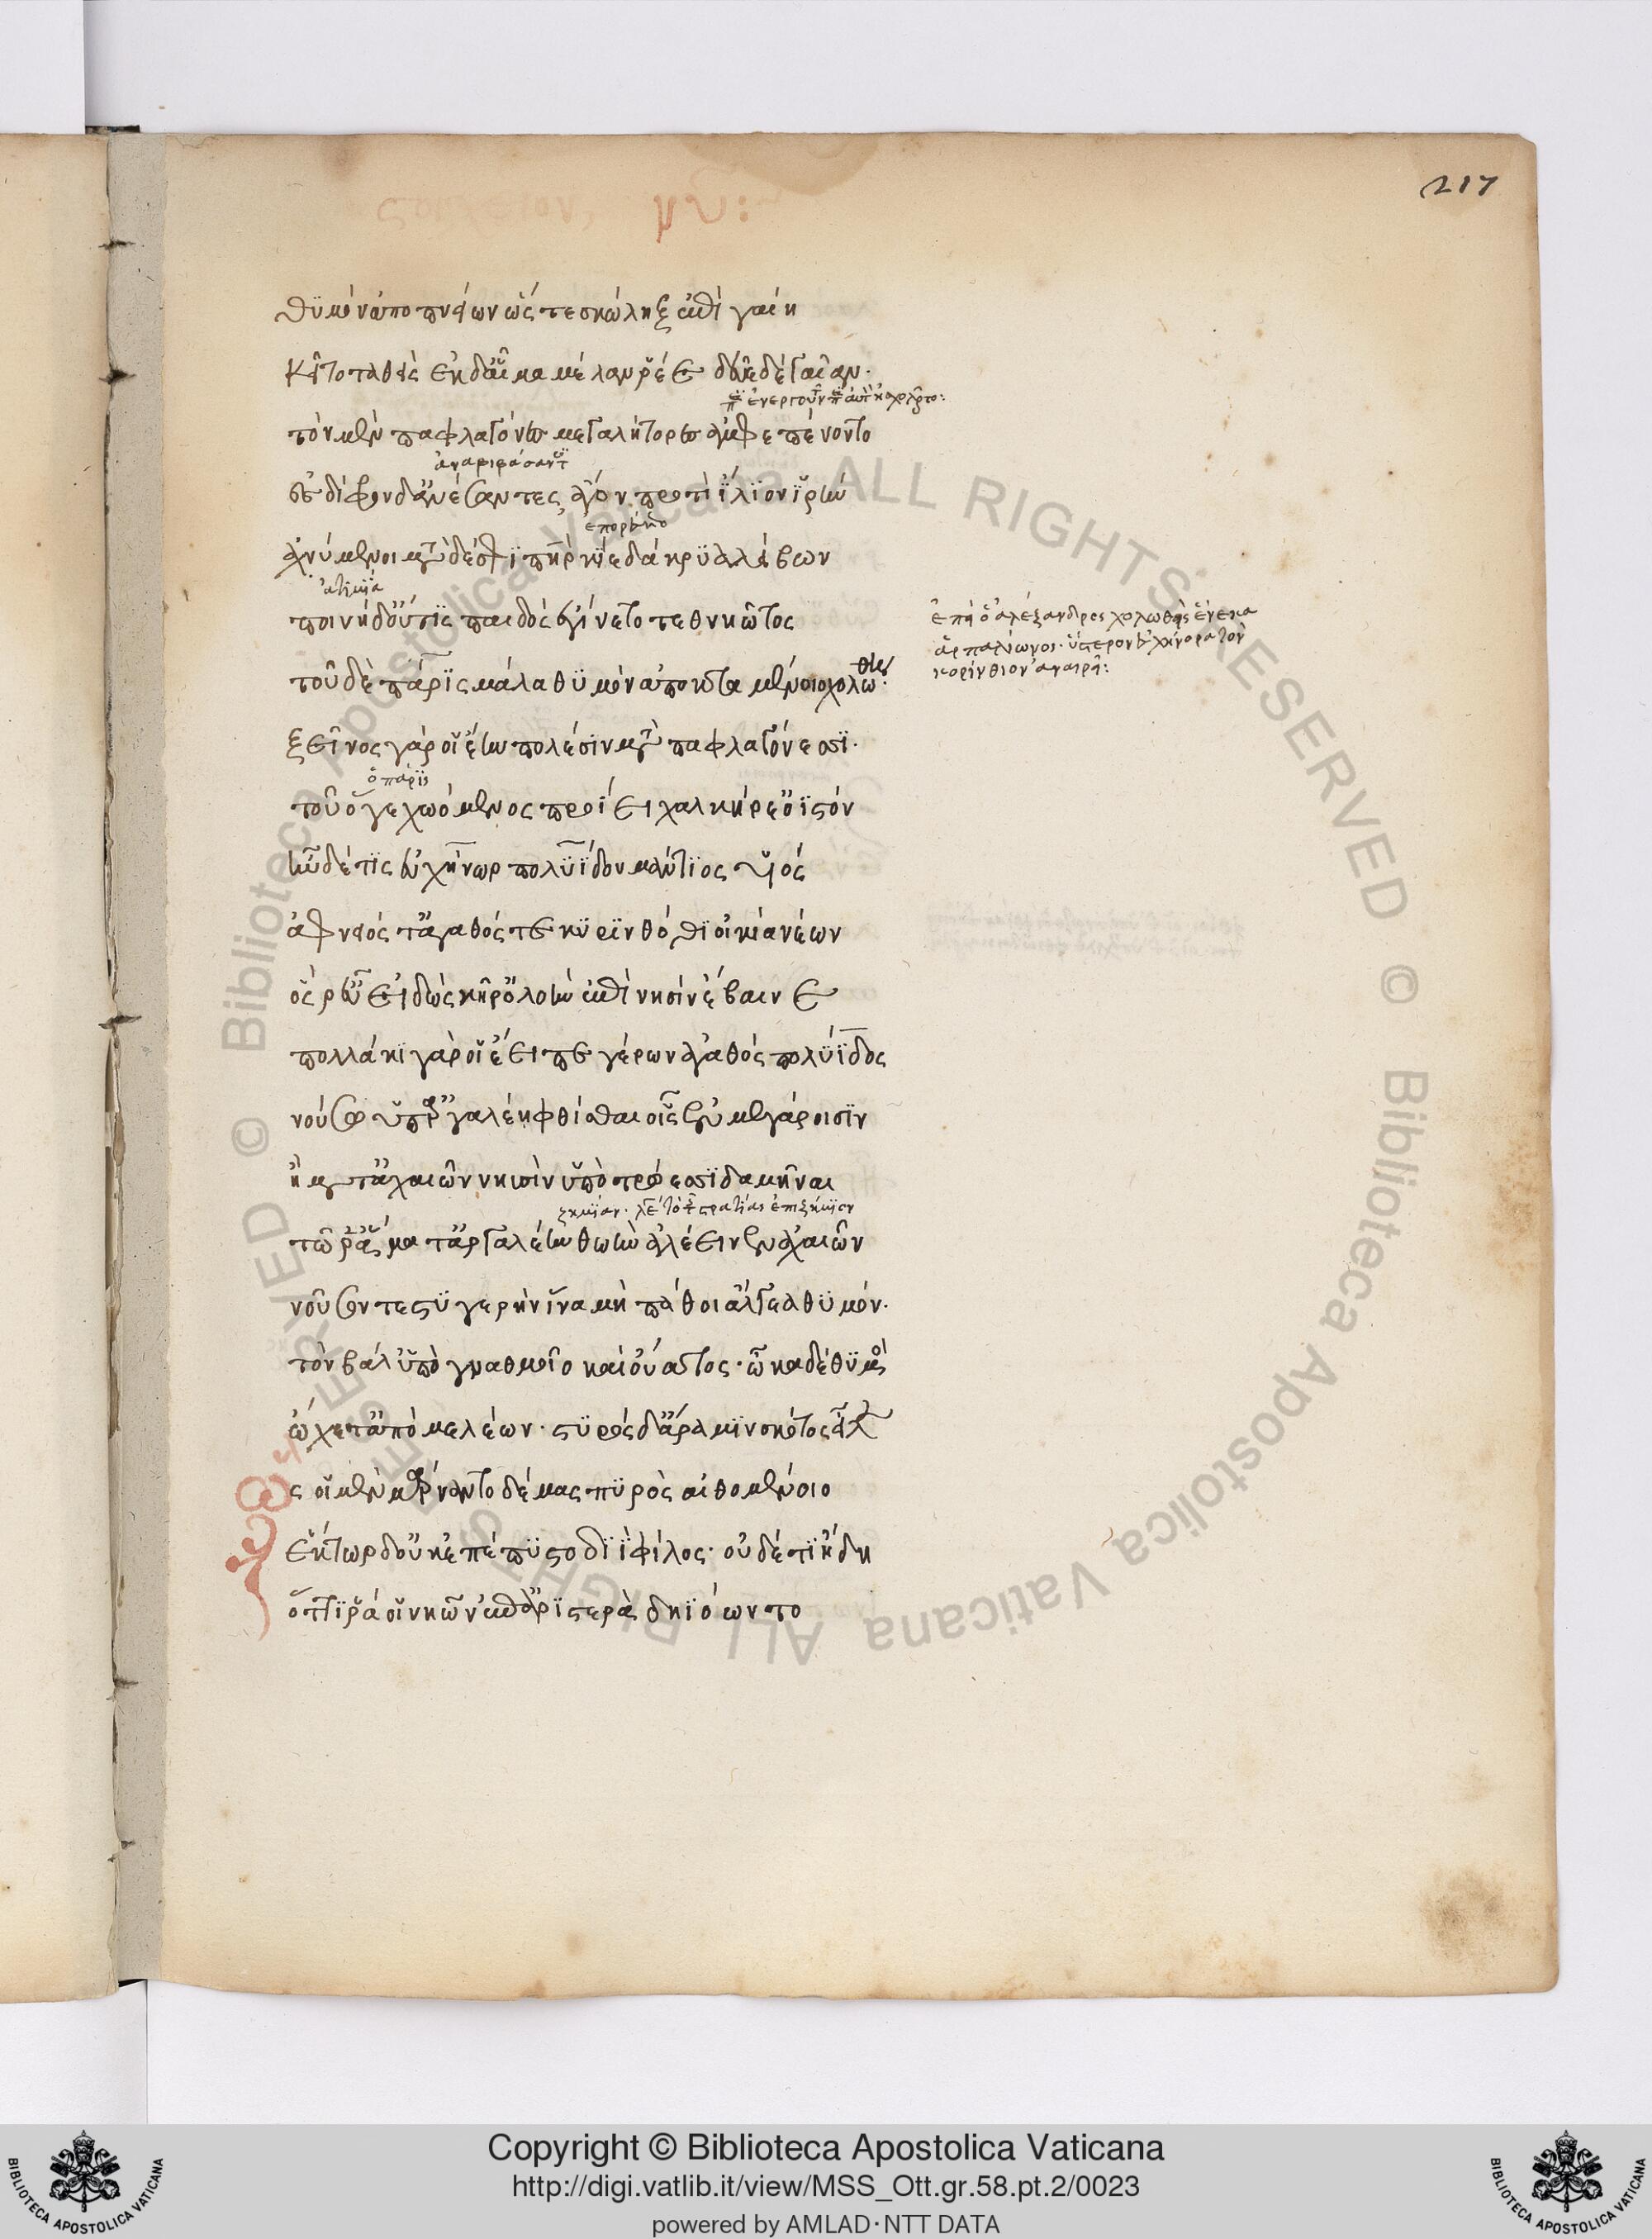 217
στοιχεῖον μῦ:
θυμὸν ἀποπνείων ὥς τε σκώληξ ἐπὶ γαίῃ
κεῖτο ταθεὶς ἐκ δ' αἷμα μέλαν ῥέε δεῦε δὲ γαῖαν·
τὸν μὲν παφλαγόνες μεγαλήτορες ἀμφεπένοντο
ἀναβιβάσαντες
ἐς δίφρον δ' ἀνέσαντες ἄγον προτὶ ἴλιον ἱρὴν
ἐπορεύετο
ἀχνύμενοι μετὰ δέ σφι πατὴρ κίε δάκρυα λείβων
ποινὴ δ' οὔτις παιδὸς ἐγίνετο τεθνηῶτος
ἐπεὶ ὁ ἀλέξανδρος χολωθεὶς ἕνεκα
ἁρπαλίωνος· ὕστερον εὐχήνορα τὸν
κορίνθιον ἀναιρεῖ:
τοῦ δὲ πάρις μάλα θυμὸν ἀποκταμένοιο χολώθη·
ξεῖνος γάρ οἱ ἔην πολέσιν μετὰ παφλαγόνεσσι·
ὁ πάρις
τοῦ ὅγε χωόμενος προΐει χαλκήρε' ὀϊστόν
ἦν δέ τις εὐχήνωρ πολυΐδου μάντιος υἱός
ἀφνειός τ' ἀγαθός τε κυρινθόθι οἰκία νέων
ὅς ῥ' εὖ εἰδὼς κῆρ' ὀλοὴν ἐπὶ νηὸς ἔβαινε
πολλάκι γάρ οἱ ἔειπε γέρων ἀγαθός πολύϊδος
νούσῳ ὑπ' ἀργαλέῃ φθίσθαι οἷς ἐν μεγάροισιν
ἢ μετ' ἀχαιῶν νηυσὶν ὑπὸ τρώεσσι δαμῆναι
τῶ ῥ' ἅμα τ' ἀργαλέην θωὴν ἀλέεινεν ἀχαιῶν
νοῦσόν τε στυγερὴν ἵνα μὴ πάθοι ἄλγεα θυμόν·
τὸν βάλ' ὑπὸ γναθμοῖο καὶ οὔατος· ὦκα δὲ θυμὸς
ᾤχετ' ἀπὸ μελέων· στυγερὸς δ' ἄρα μιν σκότος εἷλε
ὣς οἱ μὲν μάρναντο δέμας πυρὸς αἰθομένοιο
ἕκτωρ δ' οὐκ ἐπέπυστο διῒ φίλος· οὐδέ τι ᾔδη
ὅττι ῥά οἱ νηῶν ἐπ' ἀριστερὰ δηϊόωντο
Copyright © Biblioteca Apostolica Vaticana
http://digi.vatlib.it/view/MSS_Ott.gr.58.pt.2/0023
powered by AMLAD·NTT DATA